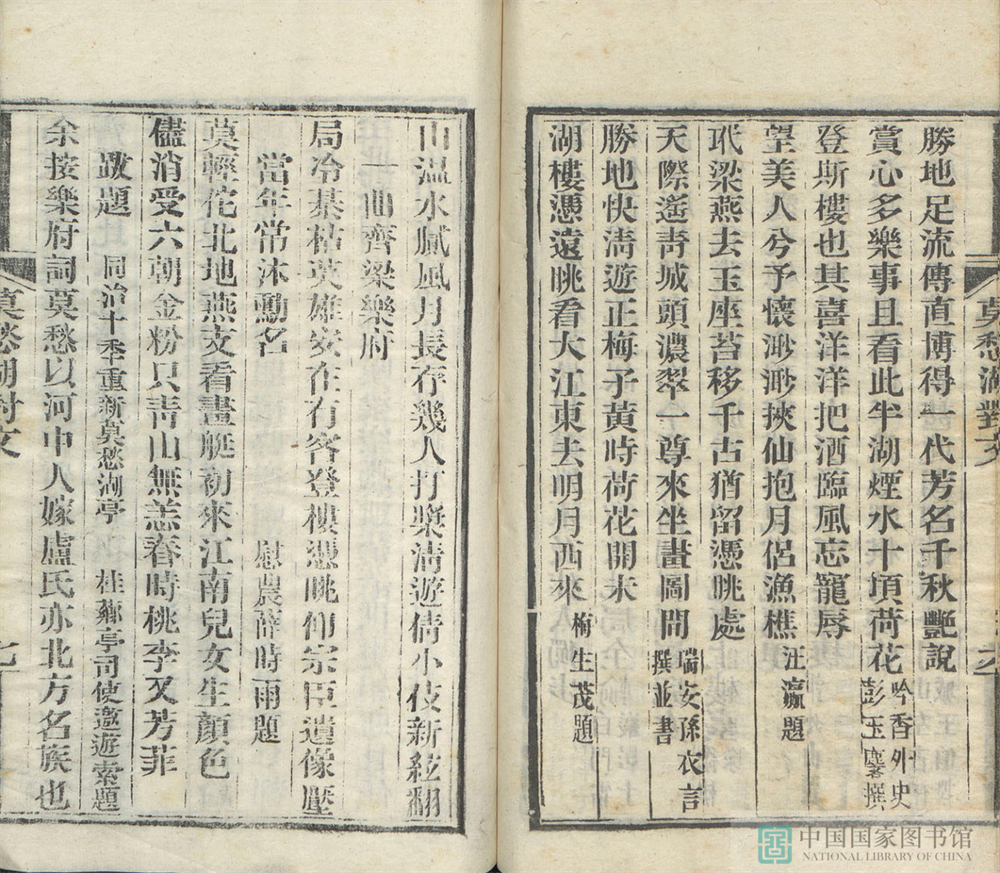 勝地足流傳直博得一代芳名千秋艷說
賞心多樂事且看此半湖煙水十頃荷花
吟香外史
彭玉麐撰
登斯樓也其喜洋洋把酒臨風忘寵辱
望美人兮予懷渺渺挾仙抱月侶漁樵
汪瀛題
玳梁燕去玉座苔移千古猶留憑眺處
天際遙靑城頭濃翠一尊來坐畫圖間
瑞安孫衣言
撰並書
勝地快淸遊正梅子黃時荷花開未
湖樓憑遠眺看大江東去明月西來
梅生茂題
莫愁湖對文
六
山溫水膩風月長存幾人打槳淸遊倩小伎新絃翻
一曲齊梁樂府
局冷棊枯英雄安在有客登樓憑眺仰宗臣遺像壓
當年常沐勳名
慰農薛時雨題
莫輕佗北地燕支看畫艇初來江南兒女生顏色
儘消受六朝金粉只靑山無恙春時桃李又芳菲
跋題
同治十季重新莫愁湖亭
桂薌亭司使邀遊索題
余按樂府詞莫愁以河中人嫁盧氏亦北方名族也
莫愁湖對文
七
中国国家图书馆
NATIONAL LIBRARY OF CHINA